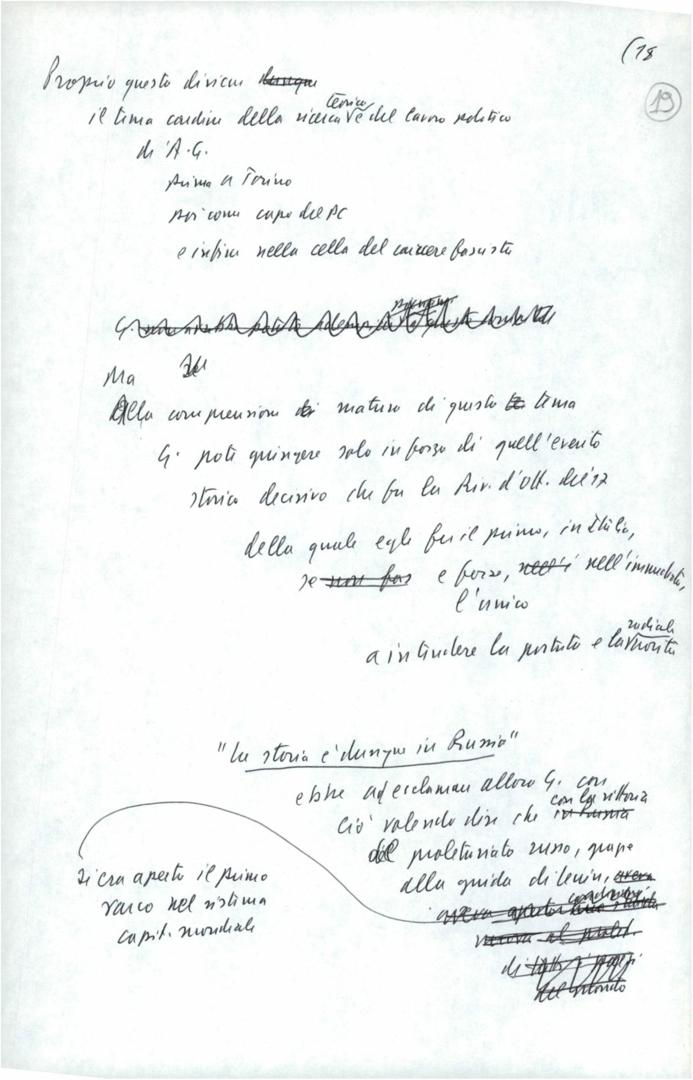 (18
19
Proprio questo divieni dunque
il tema cardine della ricerca teorica e del lavoro politico
di A.G.
prima a Torino
poi come capo del PC
e infine nella cella del carcere fascista
G.
Ma
Alla comprensione di matura di questo te tema
G. poté giungere solo in forza di quell'evento
storico decisivo che fu la Riv. d'Ott. del '17
della quale egli fu il primo, in Italia,
se non fos e forse, nell'i nell'immediato,
l'unico
a intendere la portata e la radicale novità
"La storia è dunque in Russia"
ebbe ad esclamare allora G. con
ciò volendo dire che in Russia con la vittoria
del proletariato russo, grazie
alla guida di Lenin, aveva
aveva aperto una strada
nuova al prolet.
di tutti i paesi
del mondo
si era aperto il primo
varco nel sistema
capit. mondiale